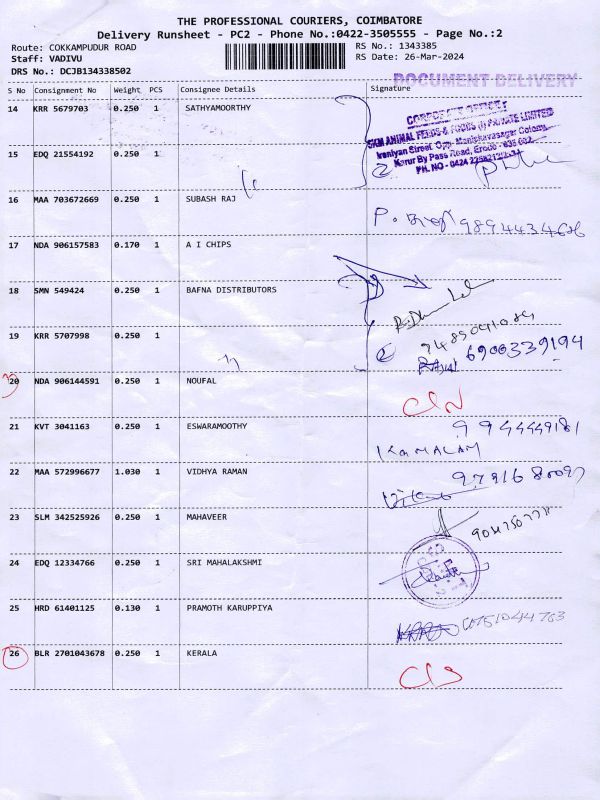 THE PROFESSIONAL COURIERS, COIMBATORE
Delivery Runsheet - PC2 - Phone No.:0422-3505555 - Page No.:2
Route: COKKAMPUDUR ROAD
RS No.: 1343385
Staff: VADIVU
RS Date: 26-Mar-2024
DRS No.: DCJB134338502
DOCUMENT DELIVERY
S No Consignment No Weight PCS Consignee Details Signature
14 KRR 5679703 0.250 1 SATHYAMOORTHY
CORPORATE OFFICE:
SKM ANIMAL FEEDS & FOODS (I) PRIVATE LIMITED
Street, Opp. Manickavasagar Colony,
Karur By Pass Road, Erode - 638 002.
15 EDQ 21554192 0.250 1
16 MAA 703672669 0.250 1 SUBASH RAJ
17 NDA 906157583 0.170 1 A I CHIPS
18 SMN 549424 0.250 1 BAFNA DISTRIBUTORS
19 KRR 5707998 0.250 1
6900339194
20 NDA 906144591 0.250 1 NOUFAL
21 KVT 3041163 0.250 1 ESWARAMOOTHY
KAMALAM
22 MAA 572996677 1.030 1 VIDHYA RAMAN
23 SLM 342525926 0.250 1 MAHAVEER
24 EDQ 12334766 0.250 1 SRI MAHALAKSHMI
25 HRD 61401125 0.130 1 PRAMOTH KARUPPIYA
26 BLR 2701043678 0.250 1 KERALA